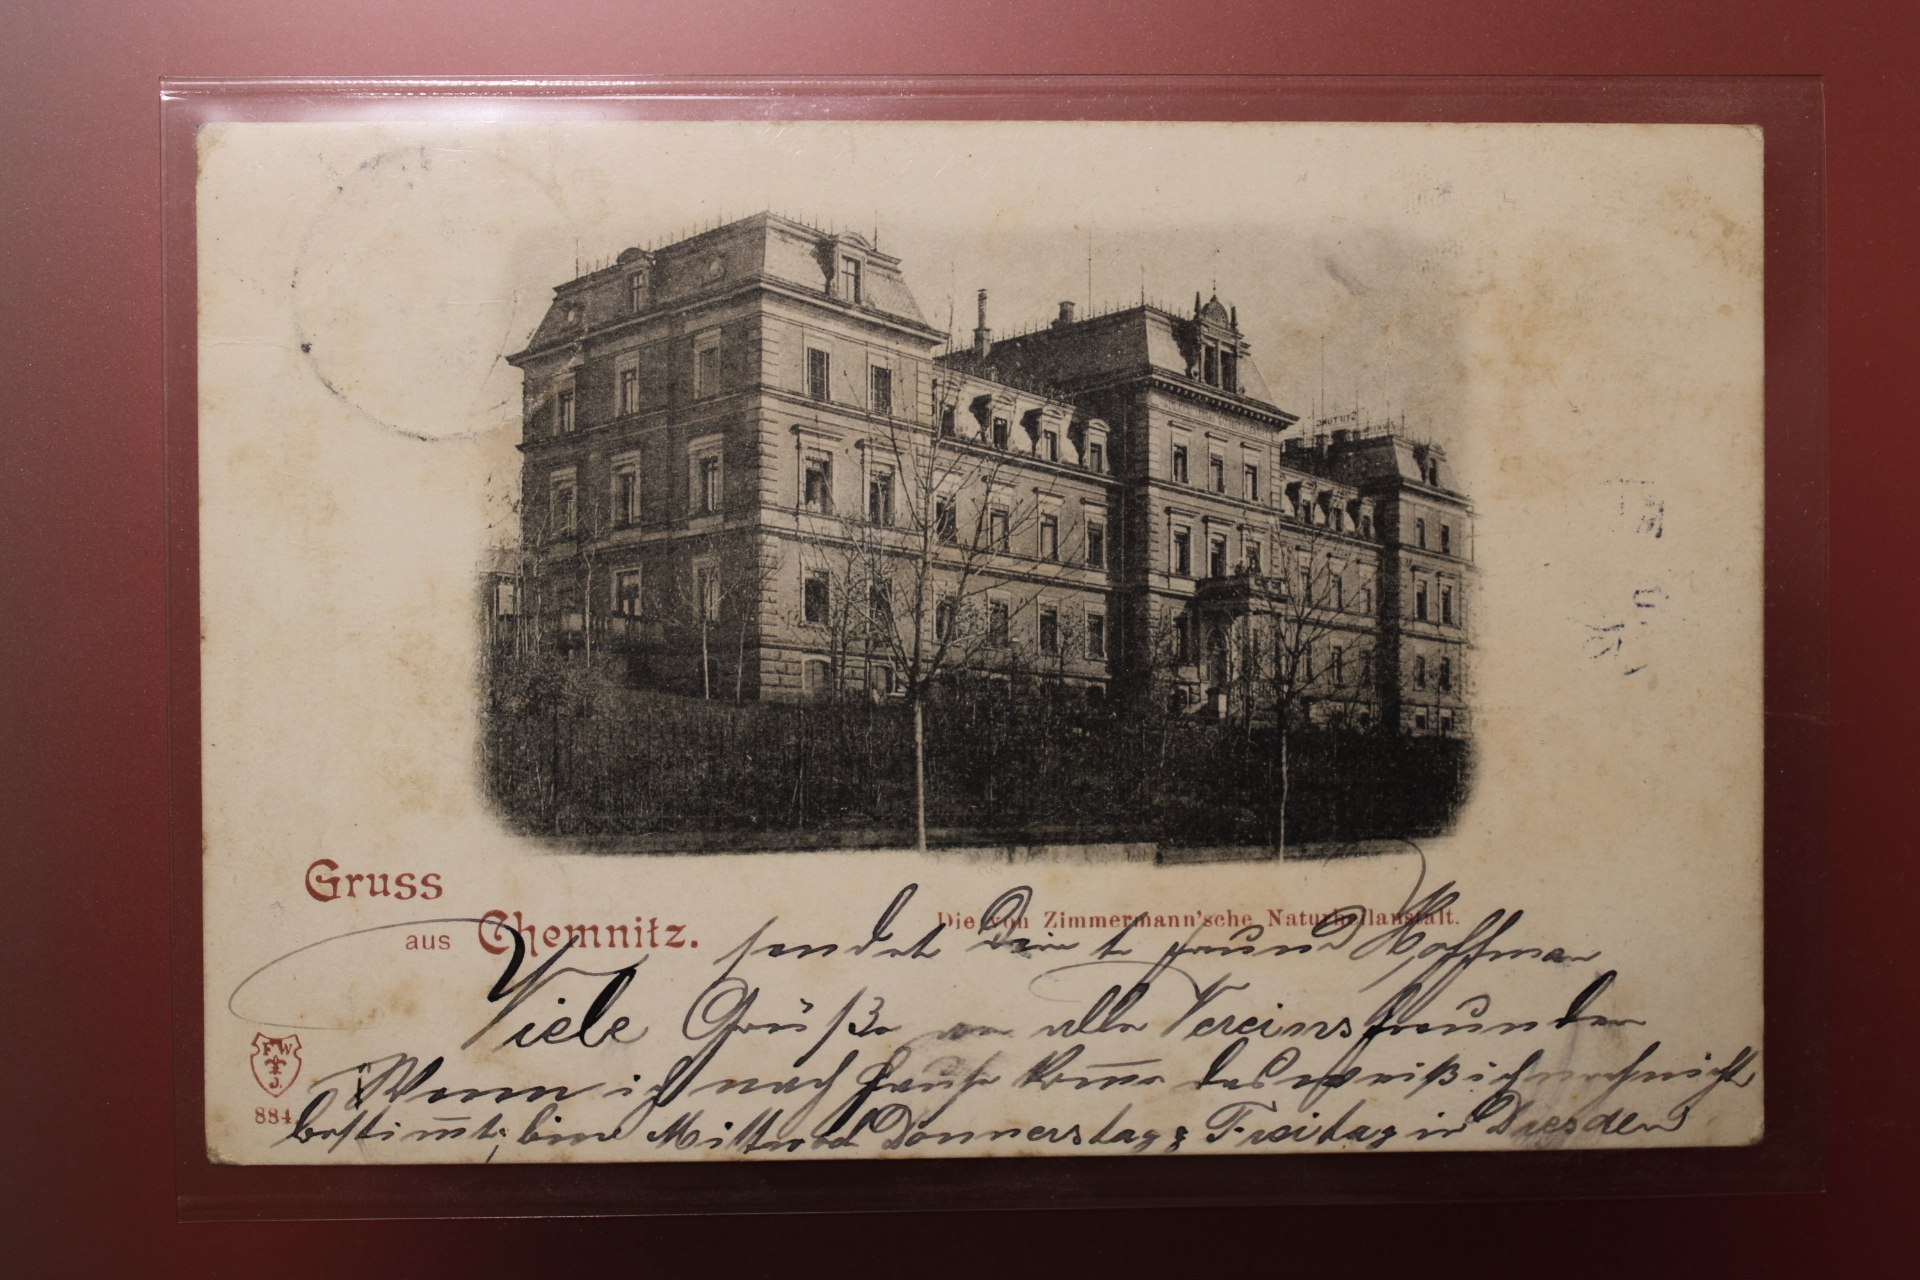 Gruss
aus Chemnitz.
Die von Zimmermann'sche Naturheilanstalt.
sendet Dein Freund Hoffman
Viele Grüße an alle Vereinsfreunden
Wenn ich nach Hause kom̅e das weiß ich noch nicht
bestim̅t, bin Mittwoch Donnerstag & Freitag in Dresden
F W
J.
884